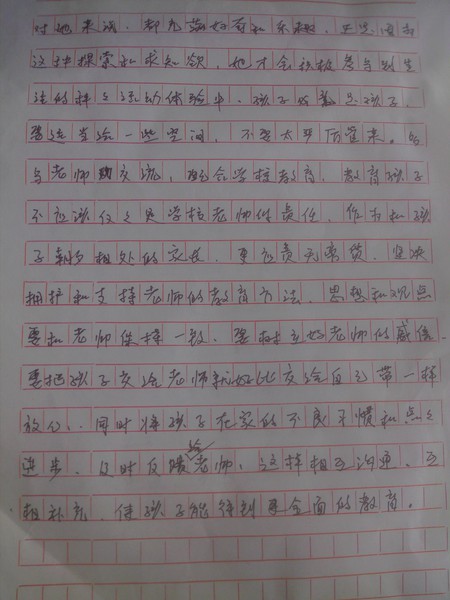 对她来说，都充满好奇和乐趣，正是因为
这种探索和求知欲，她才会积极参与到生
活的种之活动体验中。孩子必竟是孩子，
要适当给一些空间，不要太严厉管束。多
与老师交流，配合学校教育，教育孩子
不应该仅之是学校老师的责任，作为和孩
子朝夕相处的家长，更应责无旁贷，坚决
拥护和支持老师的教育方法，思想和观点
要和老师保持一致，要树立好老师的威信，
要把孩子交给老师就好比交给自己带一样
放心，同时将孩子在家的不良习惯和点之
进步，及时反馈给老师，这样相互沟通，互
相补充，使孩子能得到更全面的教育。